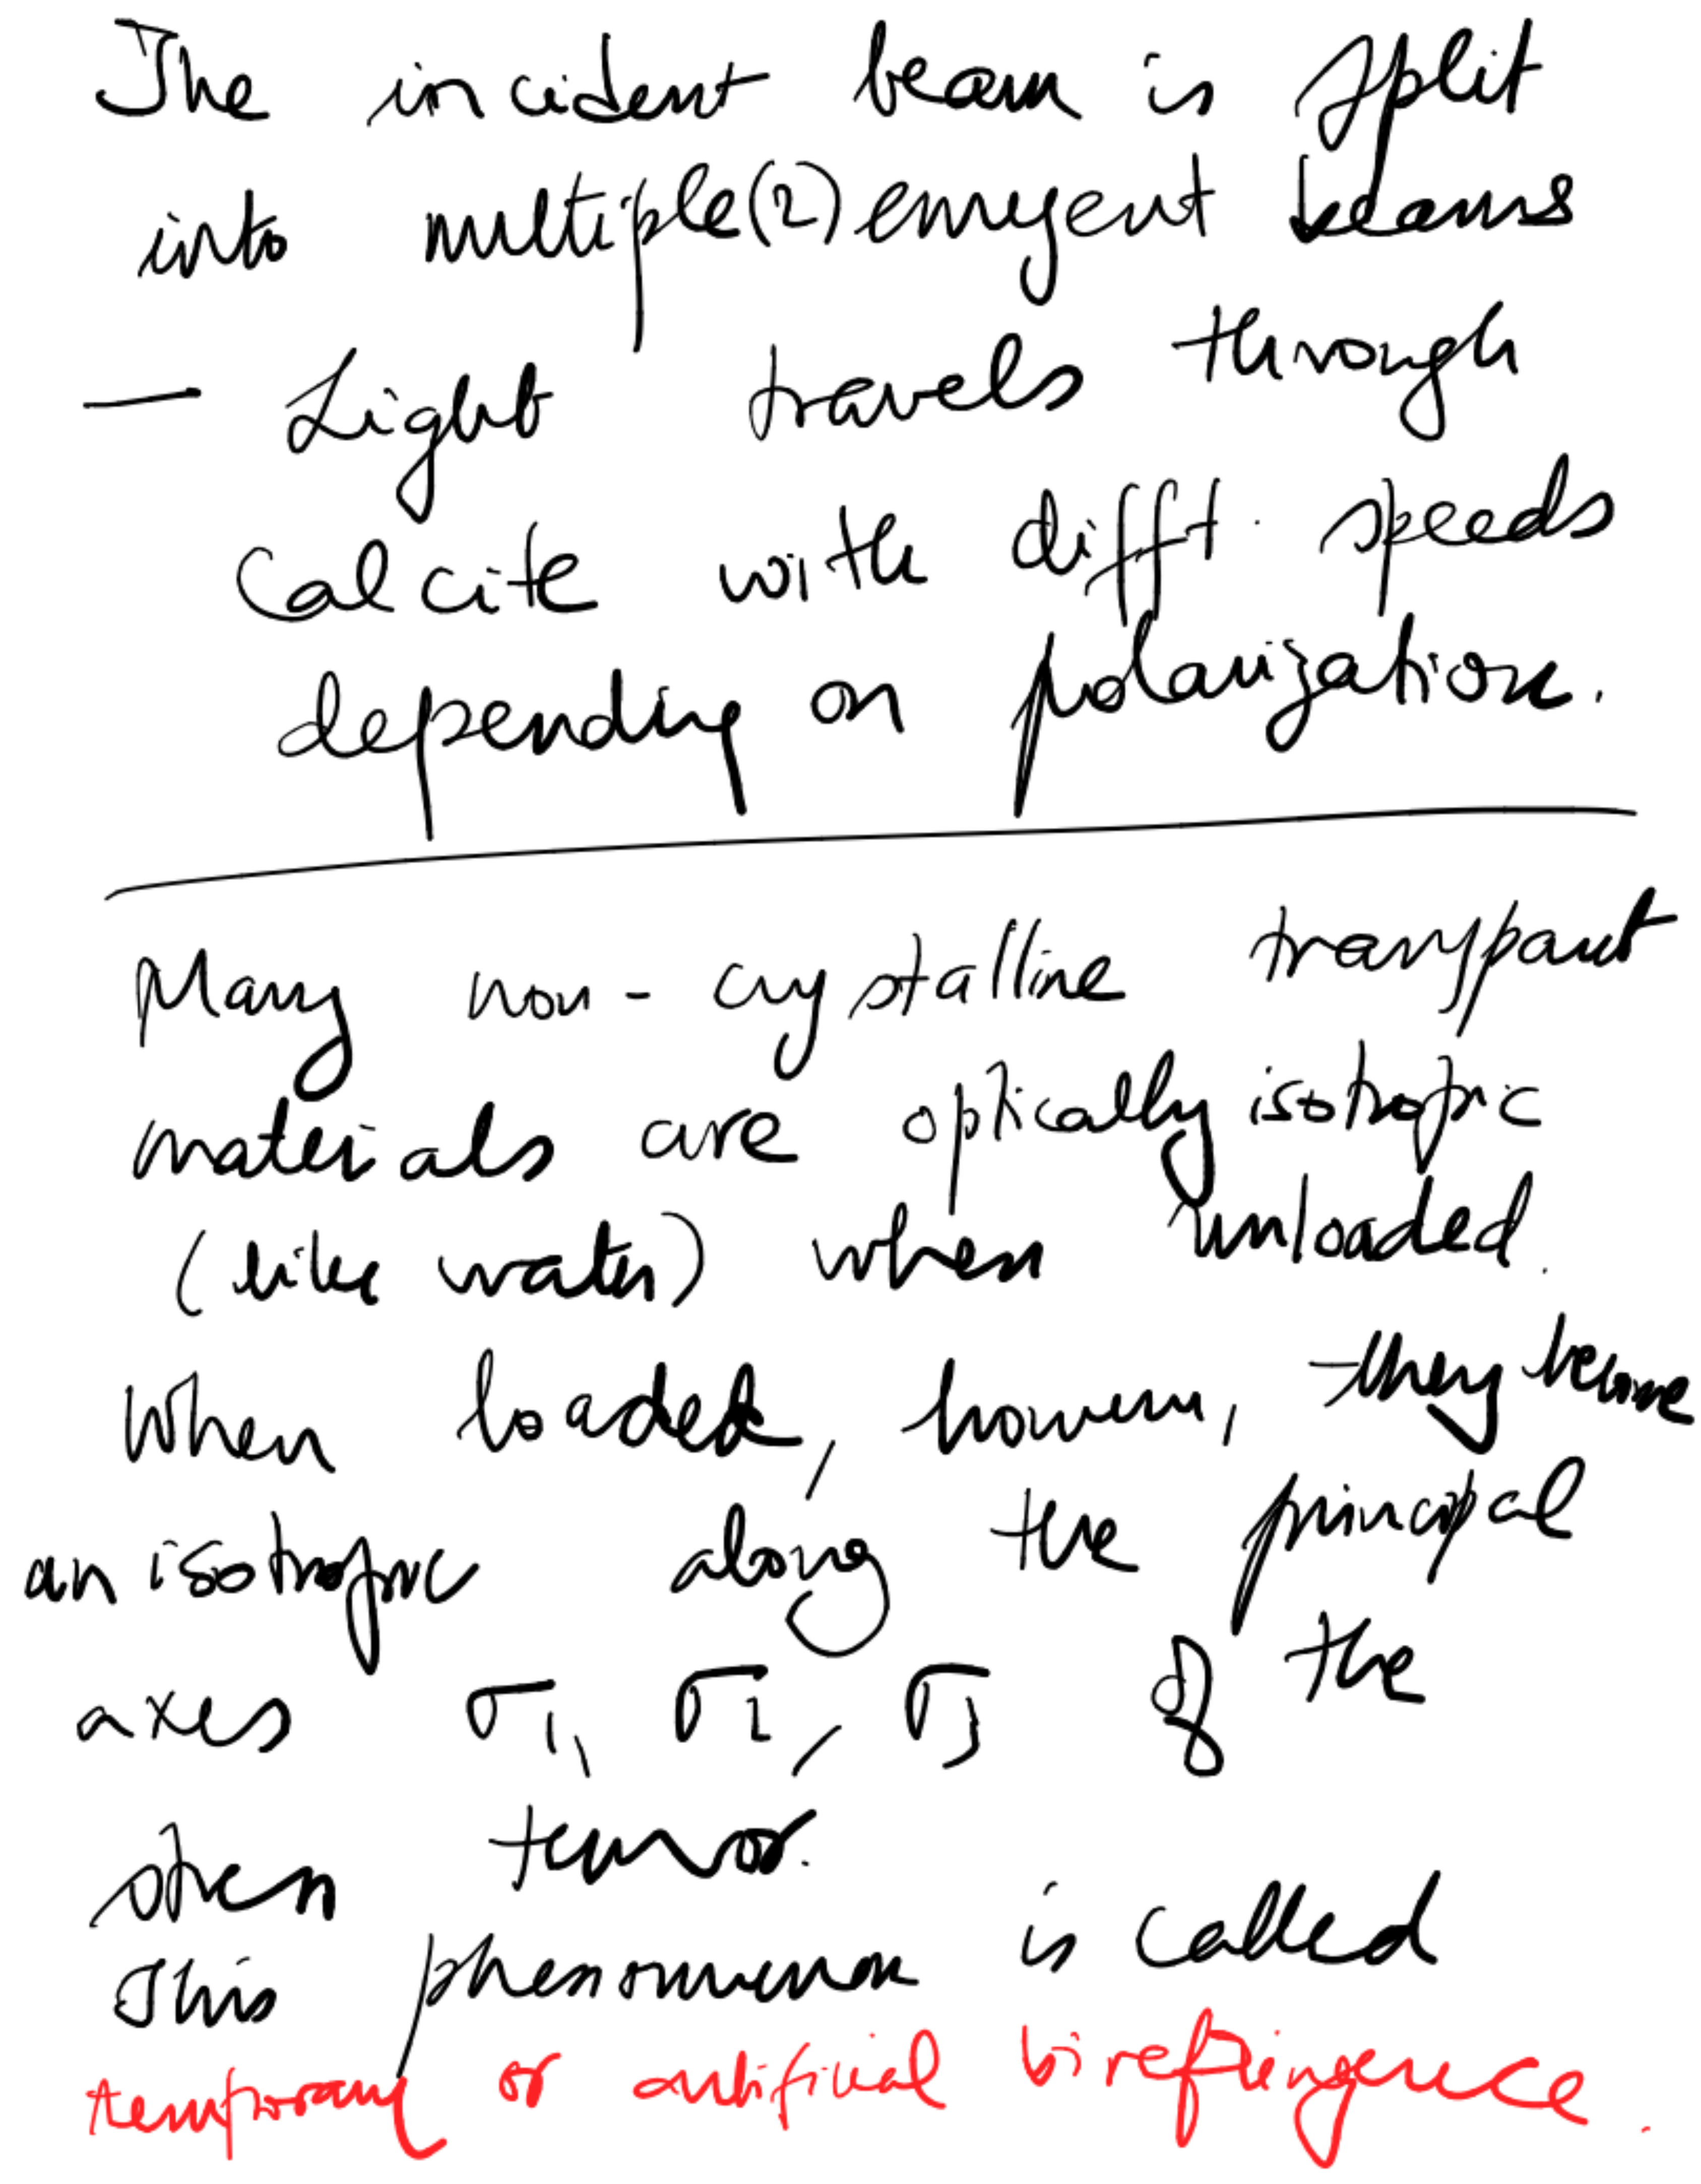 The incident beam is split
into multiple(2) emergent beams
— Light travels through
Calcite with difft. speeds
depending on polarization.
Many non-crystalline transparent
materials are optically isotropic
(like water) when unloaded.
When loaded, however, they become
anisotropic along the principal
axes σ1, σ2, σ3 of the
stress tensor.
This phenomenon is called
temporary or artificial birefringence.